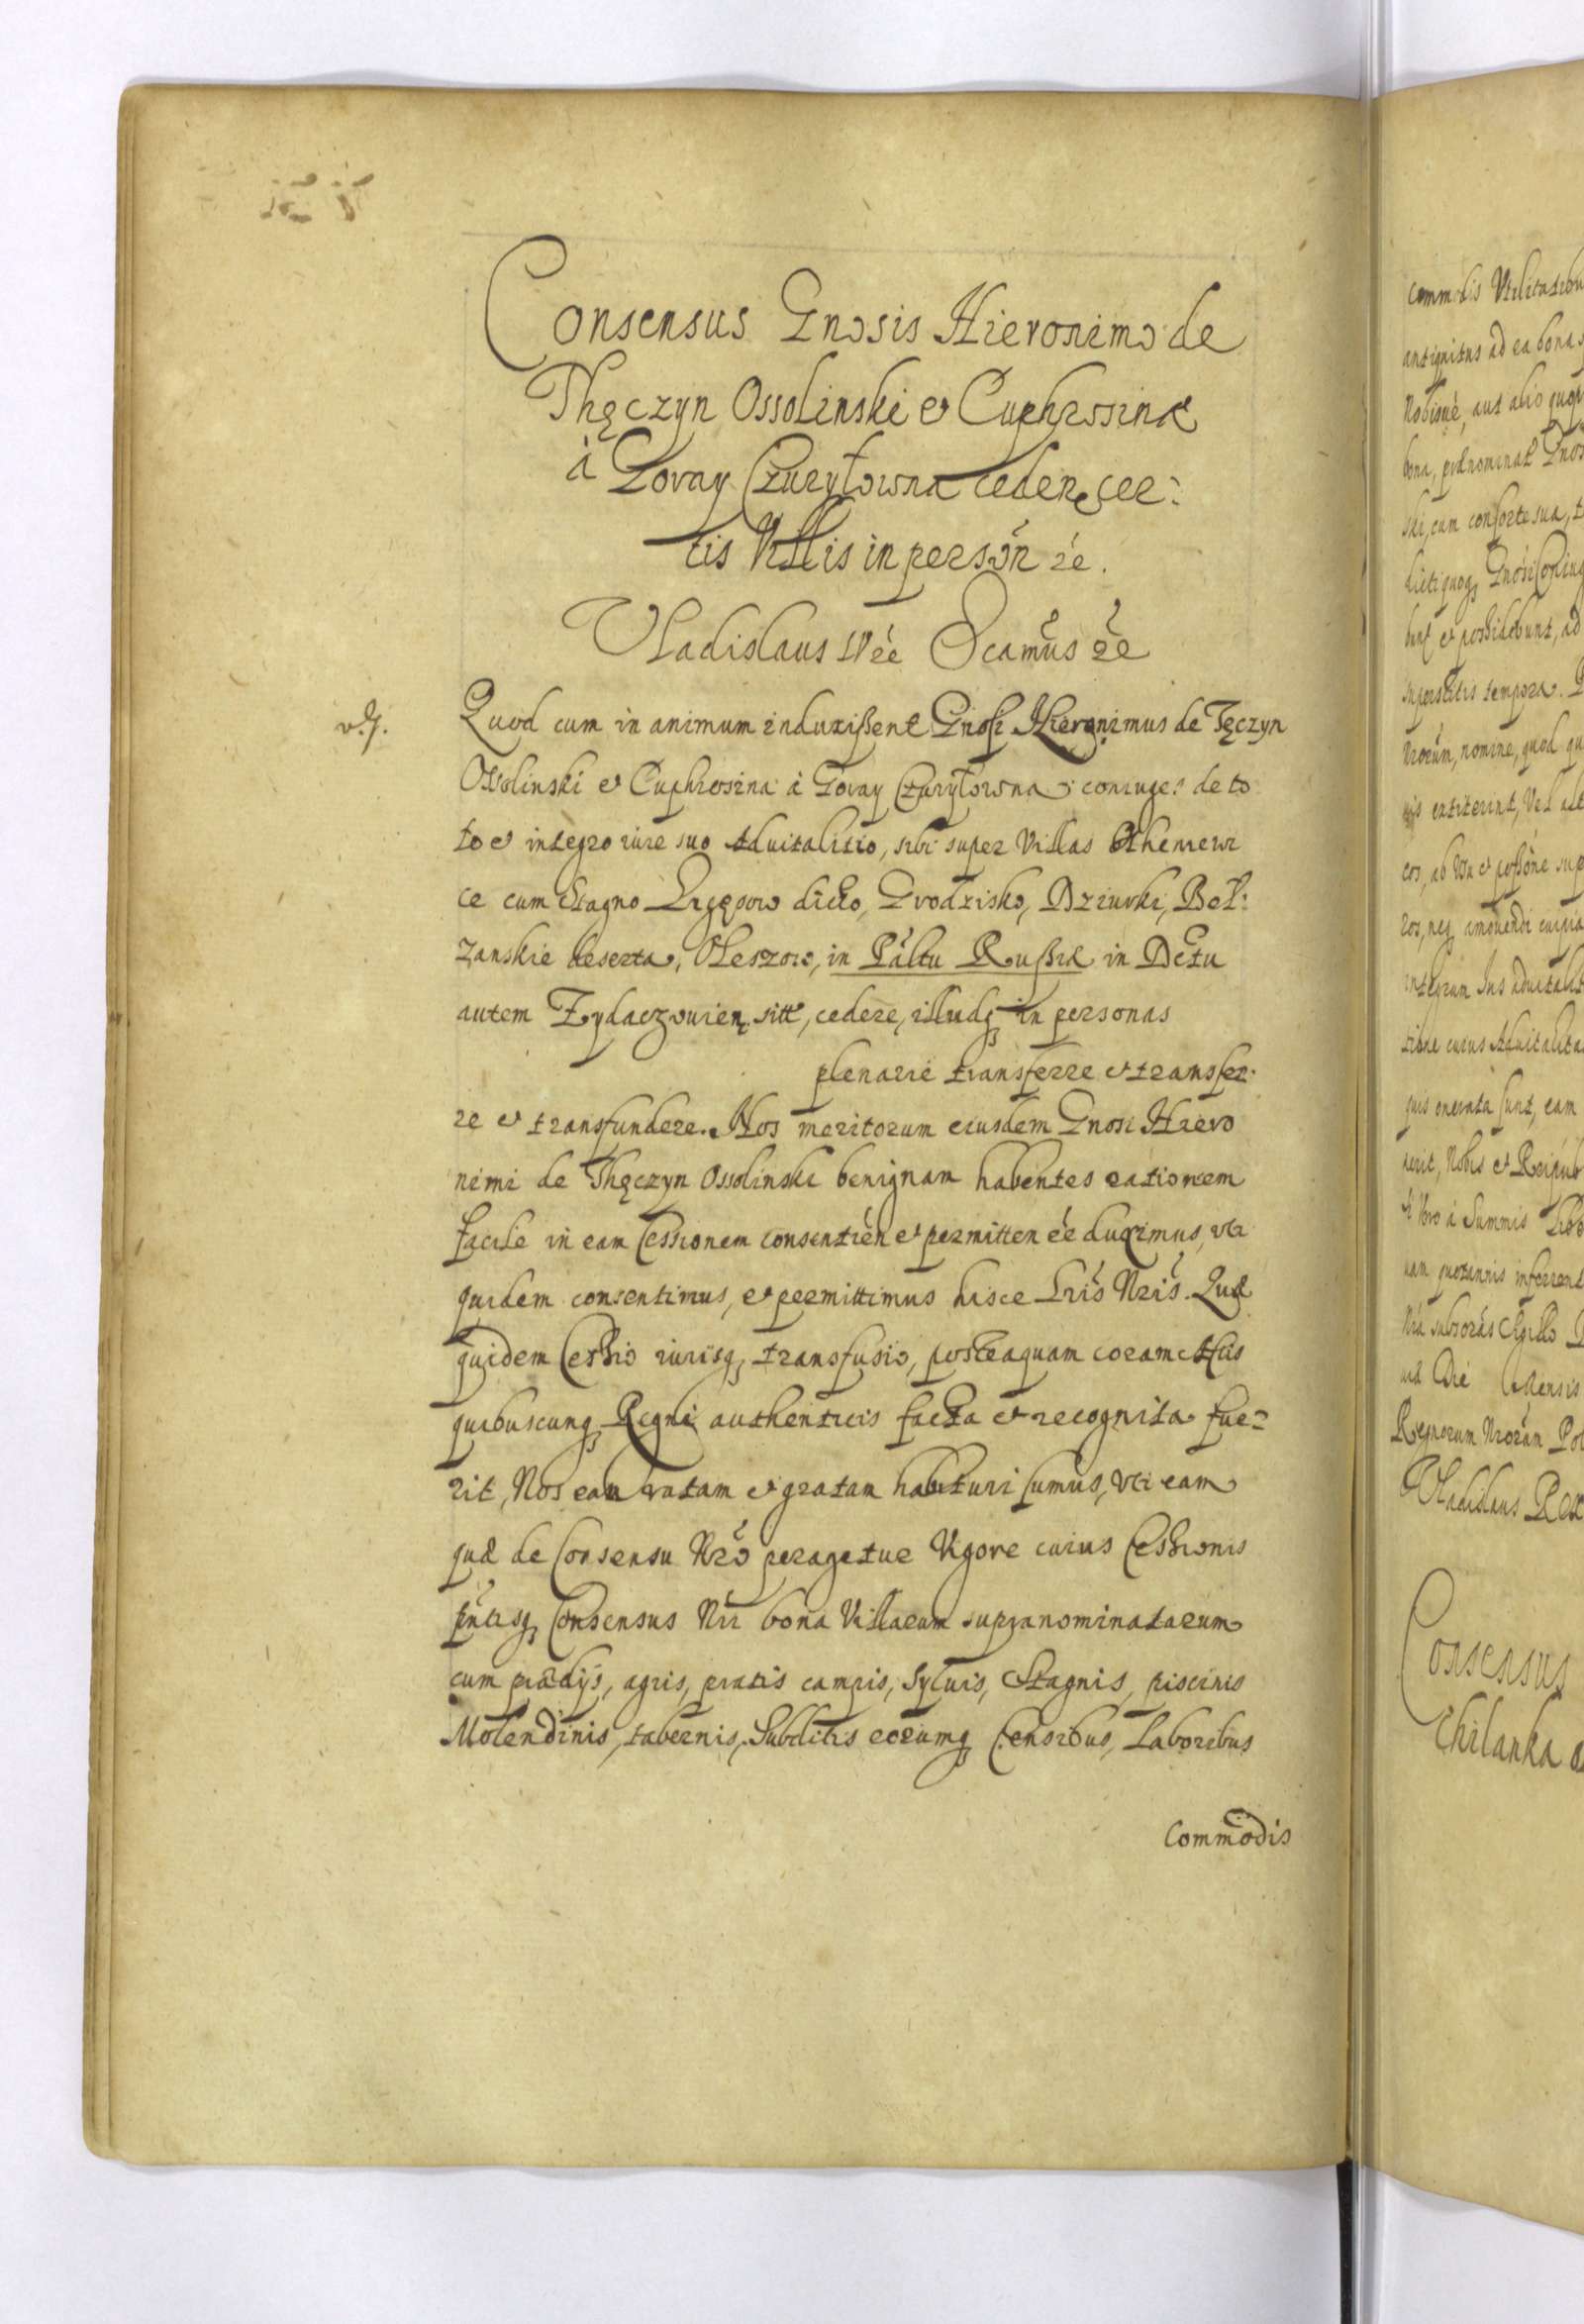 Consensus Gnosis Hieronimo de
Thęczyn Ossolinski et Euphrosinæ
à Goray Czuryłowna ceden cer:
tis Villis in persōn rć.
Vladislaus IV rć ... rć
v. g.
Quod cum in animum induxißent Gnosi Hieronimus de Tęczyn
Ossolinski et Euphrosina à Goray Czuryłowna coniuges de to
to et integro iure suo Aduitalitio, sibi super Villas
ce cum Stagno dicto, Grodzisko, Dziurki, Beł:
zanskie deserta, Oleszow, in Pāltu Rußiæ in Dctu
autem Zydaczouien sitt, cedere, illudq in personas
plenarie transferre et transfer
re et transfundere. Nos meritorum eiusdem Gnosi Hiero
nimi de Thęczyn Ossolinski benignam habentes rationem
facile in eam Cessionem consentien et permitten eē duximus, uti
quidem consentimus, et permittimus hisce Lris Nris. Quæ
quidem Ceßio iurisq transfusio, posteaquam coram Actis
quibuscunq Regni authenticis facta et recognita fue=
rit, Nos eam ratam et gratam habituri sumus, uti eam
quæ de Consensu Nro peragetur Vigore cuius Ceßionis
pntisq Consensus Nri bona Villarum supranominatarum
cum prædijs, agris, pratis campis, Syluis, Stagnis, piscinis
Molendinis, tabernis, Subditis eorumq Censibus, Laboribus
Commodis
commodis Utilitatibu
antiquitus ad ea bona
Nobisué, aut alio quop
bona, prænominat Gnos
ski, cum consorte sua, t
dictiquoq Gnosi Coniug
bunt et possidebunt, ad
superstitis tempora.
Nrorum, nomine, quod qu
extiterint, Vel
eos, ab Usu et poßōne sup
ros, neq amouendi cuipia
integrum Ius aduitalit
tione cuius Aduitalita
quis onerata sunt, eam
Nobis et Reipub
Vero à Summis
nam quotannis inferrent
Nra subscrās Sigillo
Die Mensis
Regnorum Nrorum Pol
Vladislaus Rex
Consensus
Chilanka